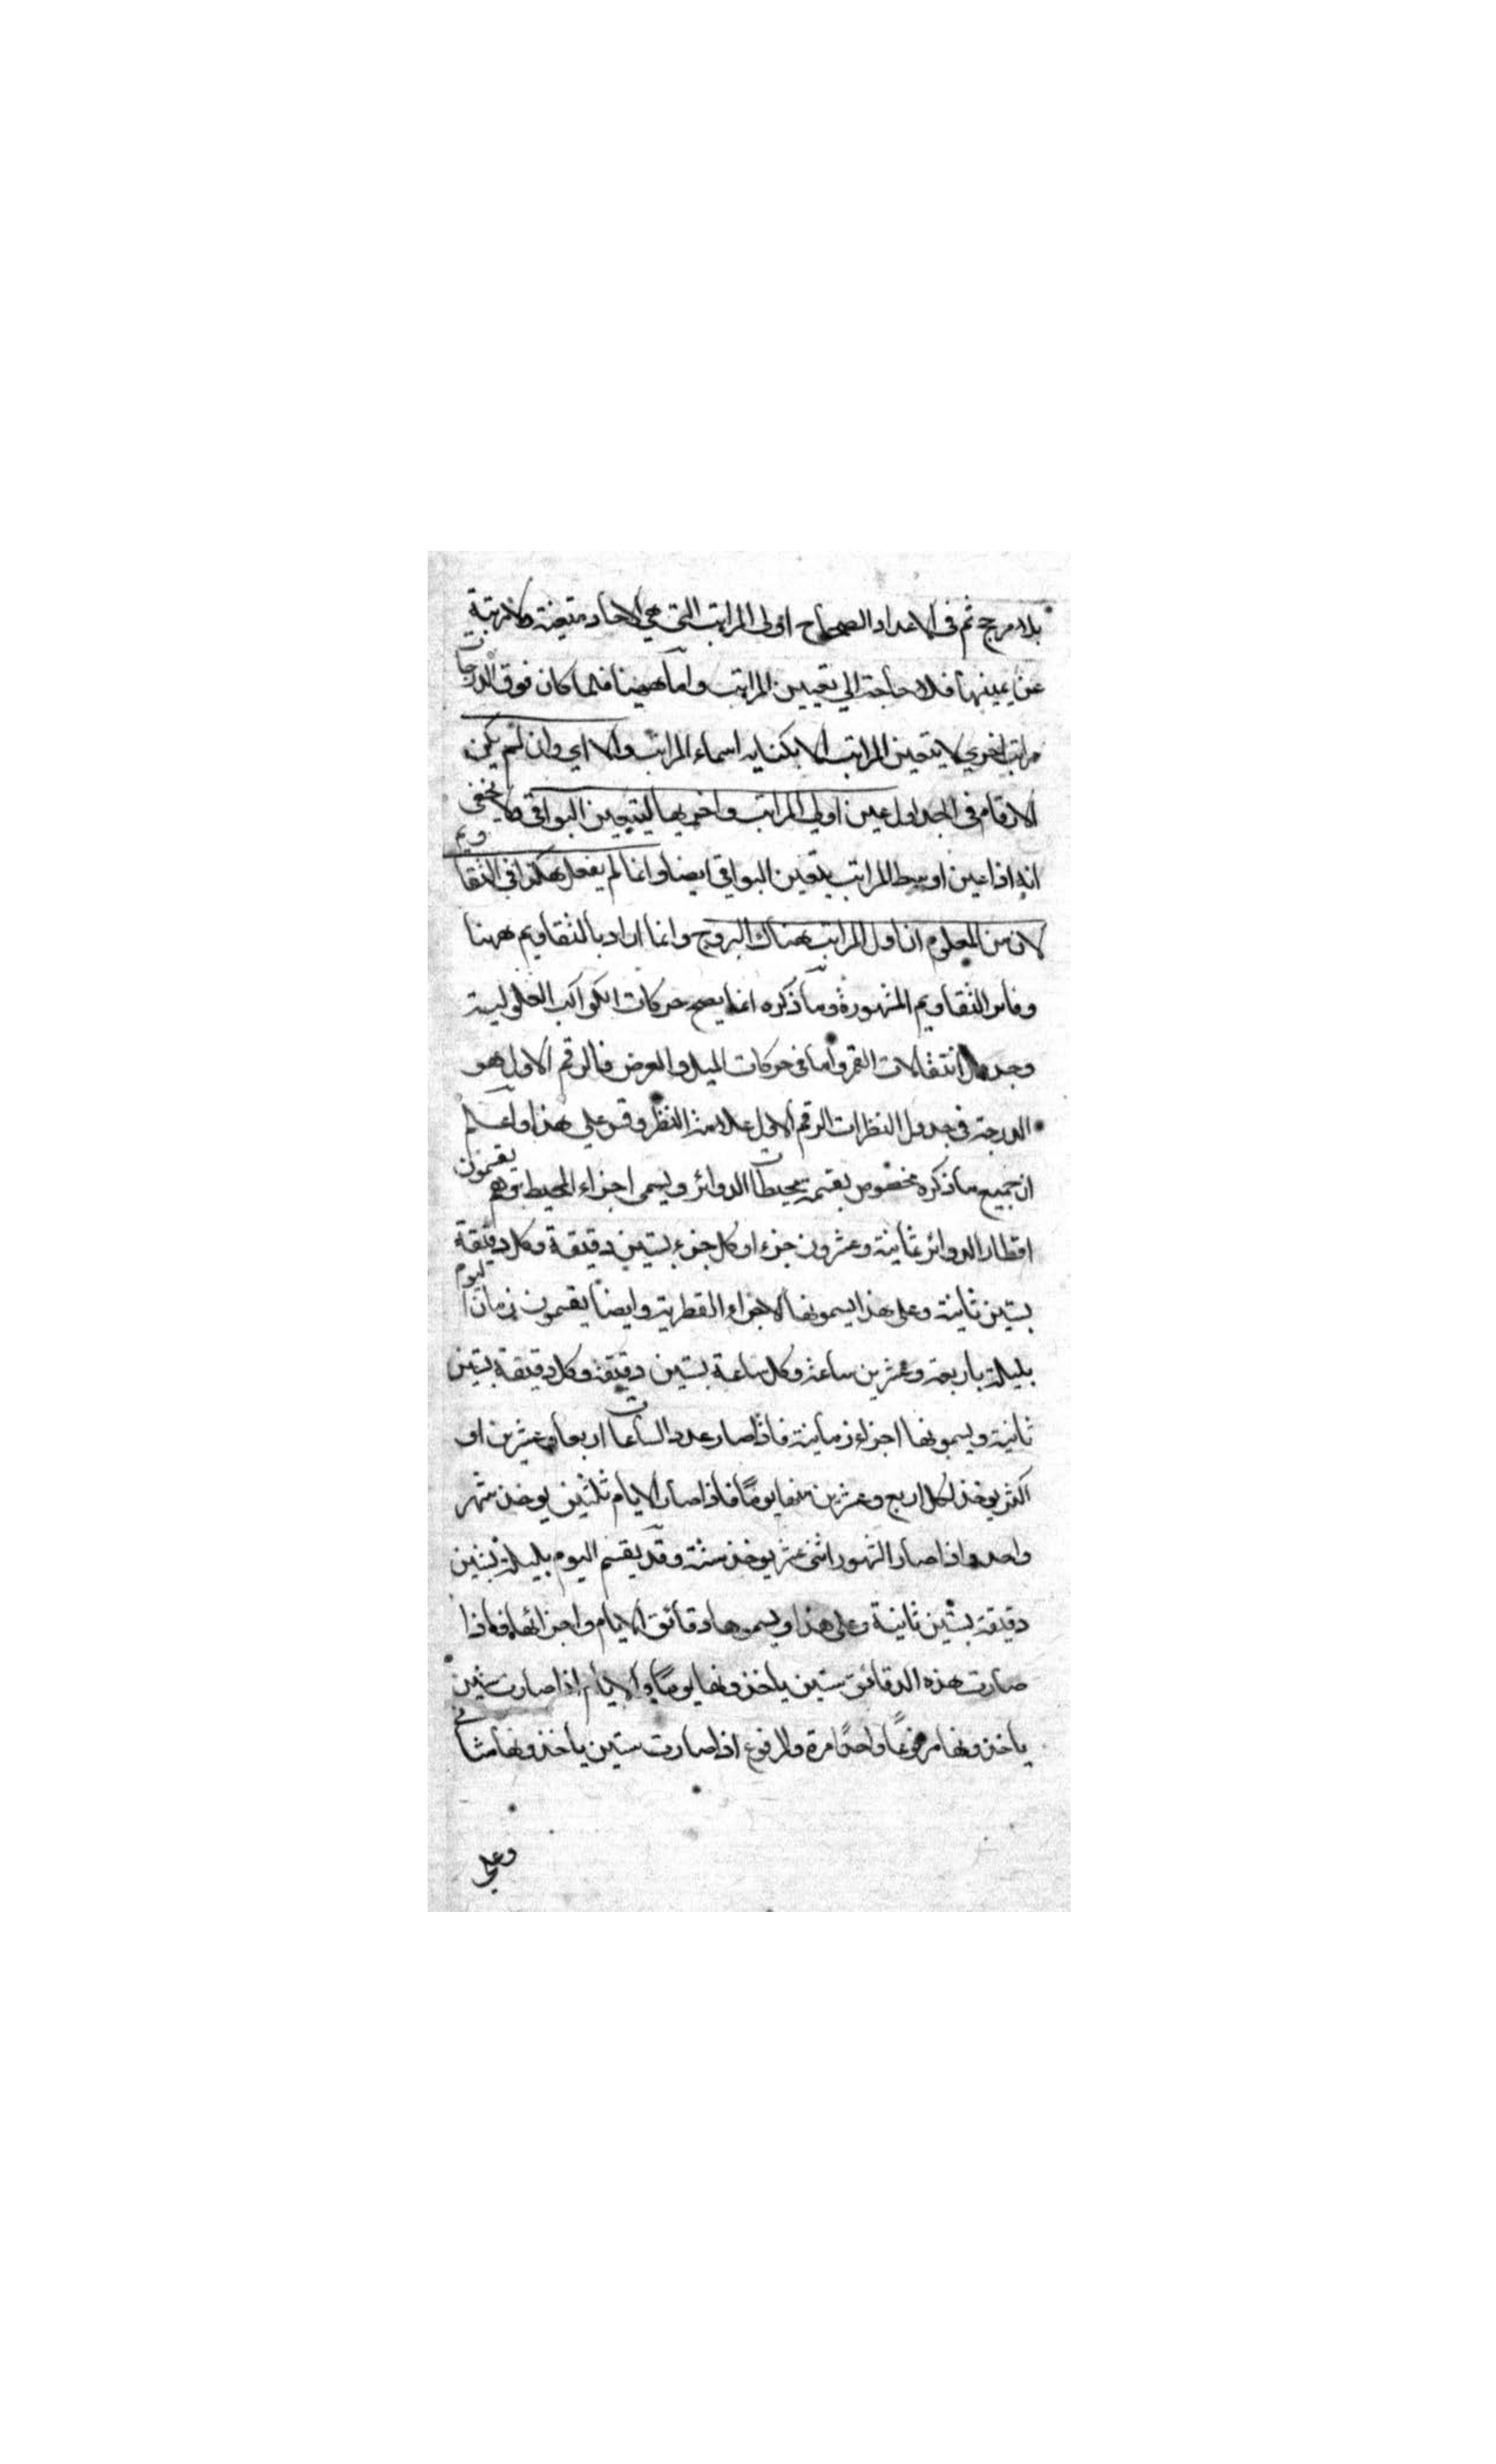 بلا مرجح ثم في الاعداد الصحاح اولى المراتب التي هي الاحاد متعينة ولا مرتبة
عن يمينها فلا حاجة الي تعيين المراتب واما ههنا فلما كان فوق الدرجات
مراتب اخري لا يتعين المراتب الا بكتابه اسماء المراتب والا اي وان لم يكن
الارقام في الجداول عين اولي المراتب واخريها ليتعين البواقي ولا يخفى
انه اذا عين اوسط المراتب يتعين البواقي ايضا وانما لم يفعل هكذا في التقاويم
لان من المعلوم ان اول المراتب هناك البروج وانما اراد بالتقاويم ههنا
التقاويم المشهورة وما ذكره انما يصح حركات الكواكب الطولية
وجدول انتقالات القمر واما في حركات الميل والعرض فالرقم الاول هو
الدرجة في جدول النظرات الرقم الاول علامة النظر وقس علي هذا واعلم
ان جميع ما ذكره مخصوص بقسمة محيطات الدوائر ويسمى اجزاء المحيط وهم يقسمون
اقطار الدوائر بمائة وعشرون جزء او كل جزء بستين دقيقة وكل دقيقة
بستين ثانية وعلى هذا يسمونها الاجزاء القطرية وايضا يقسمون زمان اليوم
بليلة باربعة وعشرين ساعة وكل ساعة بستين دقيقة وكل دقيقة بستين
ثانية ويسمونها اجزاء زمانية فاذا صار عدد الساعات اربعا وعشرين او
اكثر يوخذ لكل اربع وعشرين منها يومًا فاذا صار الايام ثلثين يوخذ شهر
واحد واذا صار الشهور اثنى عشر يوخذ سنة وقد يقسم اليوم بليلة بستين
دقيقة بستين ثانية وعلى هذا ويسموها دقائق الايام واجزائها فاذا
صارت هذه الدقائق ستين ياخذونها يومًا والايام اذا صارت ستين
ياخذونها مرفوعًا واحدًا مرة والمرفوع اذا صارت ستين ياخذونها مثاني
وعلي